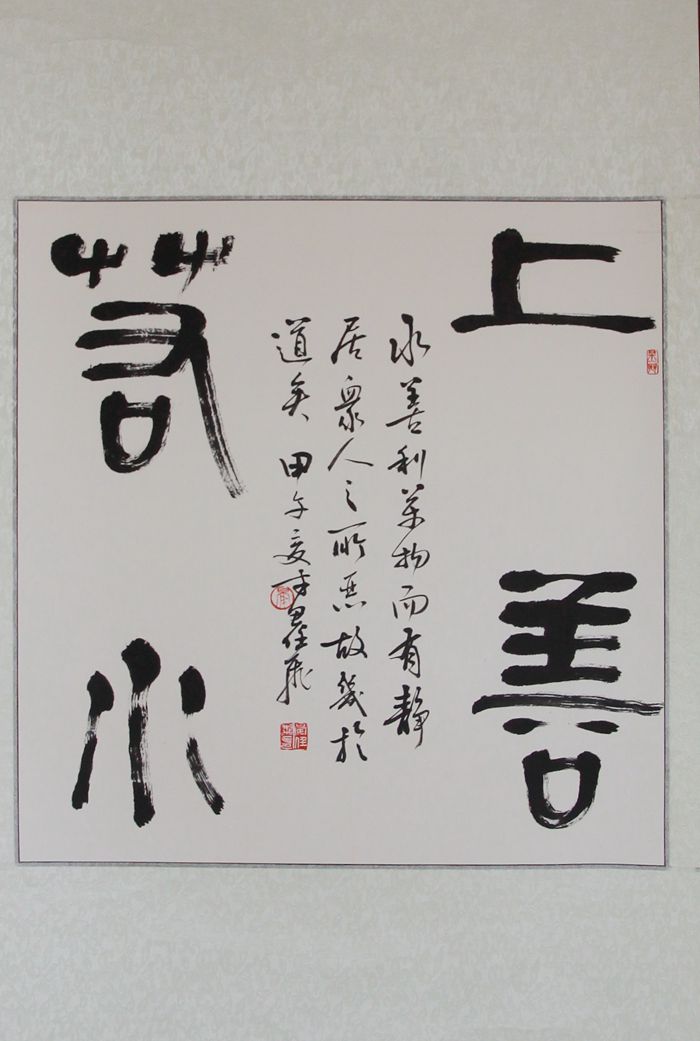 上善
若水
水善利萬物而有靜
居衆人之所惡故幾於
道矣 甲午夏